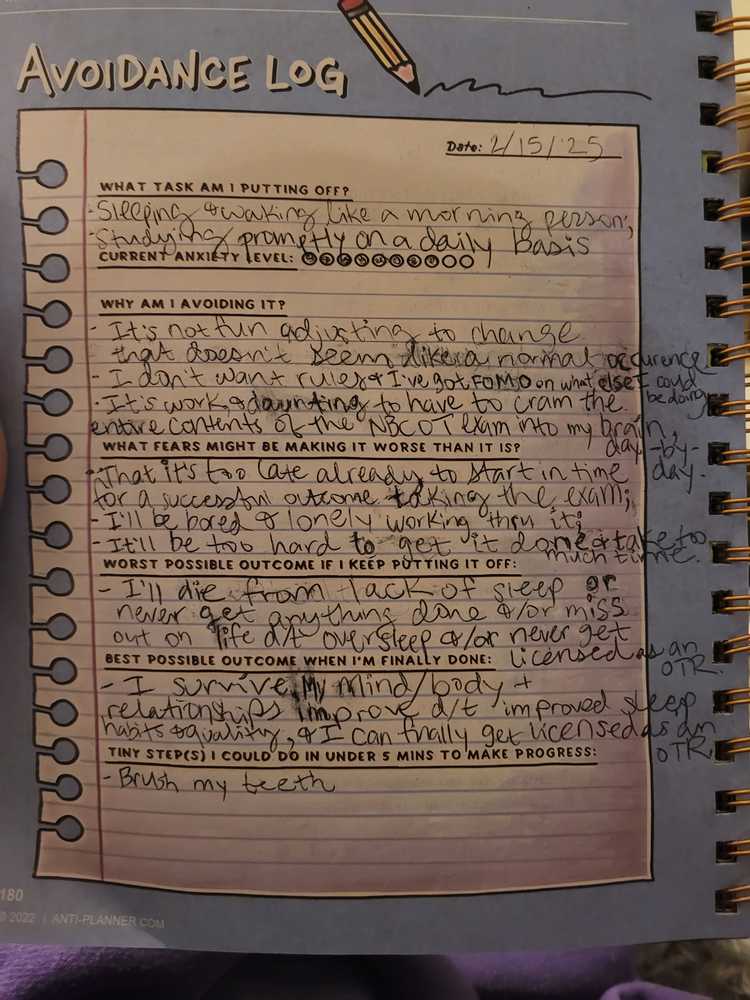 AVOIDANCE LOG
Date: 2/15/'25
WHAT TASK AM I PUTTING OFF?
- Sleeping & waking like a morning person;
- Studying promptly on a daily basis
CURRENT ANXIETY LEVEL:
WHY AM I AVOIDING IT?
- It's not fun adjusting to change
that doesn't seem like a normal occurence
- I don't want rules & I've got FOMO on what else I could
be doing
- It's work, & daunting to have to cram the
entire contents of the NBCOT exam into my brain,
day-by-
day.
WHAT FEARS MIGHT BE MAKING IT WORSE THAN IT IS?
- That it's too late already to start in time
for a successful outcome taking the exam;
- I'll be bored & lonely working thru it;
- It'll be too hard to get it done or take too
much time.
WORST POSSIBLE OUTCOME IF I KEEP PUTTING IT OFF:
- I'll die from lack of sleep or
never get anything done &/or miss
out on life d/t oversleep &/or never get
licensed as an
OTR.
BEST POSSIBLE OUTCOME WHEN I'M FINALLY DONE:
- I survive, My mind/body +
relationships improve d/t improved sleep
habits & quality, & I can finally get licensed as an
OTR
TINY STEP(S) I COULD DO IN UNDER 5 MINS TO MAKE PROGRESS:
- Brush my teeth
180
© 2022 | ANTI-PLANNER.COM